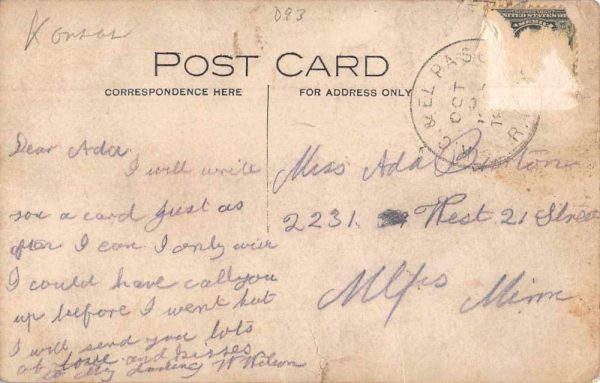 Kansas
D93
UNITED STATES OF
AMERICA
POST CARD
CORRESPONDENCE HERE
FOR ADDRESS ONLY
& EL PASO
OCT
R.P.O.
Dear Ada
I will write
you a card just as
often I can I only wish
I could have call you
up before I went but
I will send you lots
of love and kisses
to My Darling W Wilson
Miss Ada Burton
2231 West 21 Street
Mlps Minn